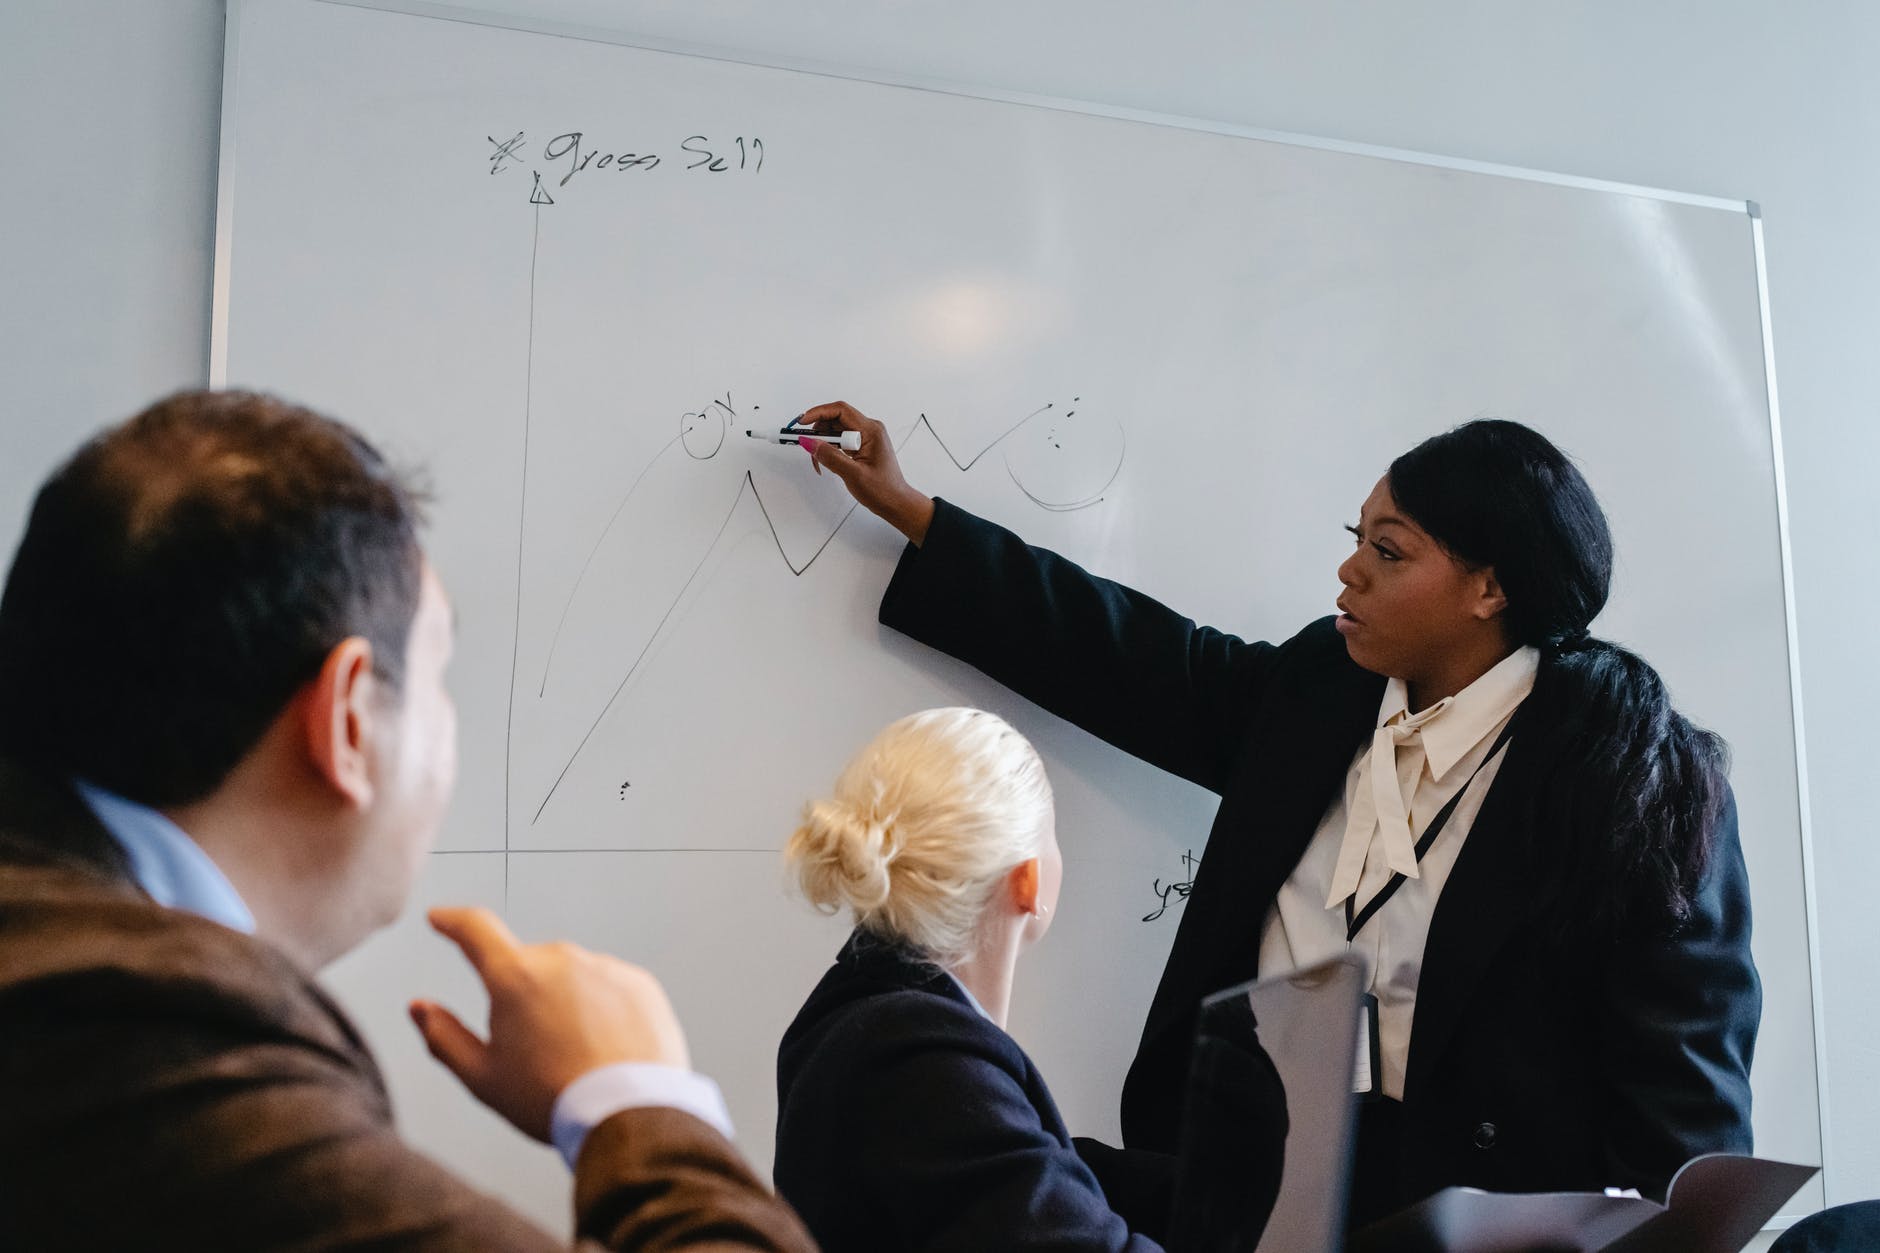 * Gross Sell
x